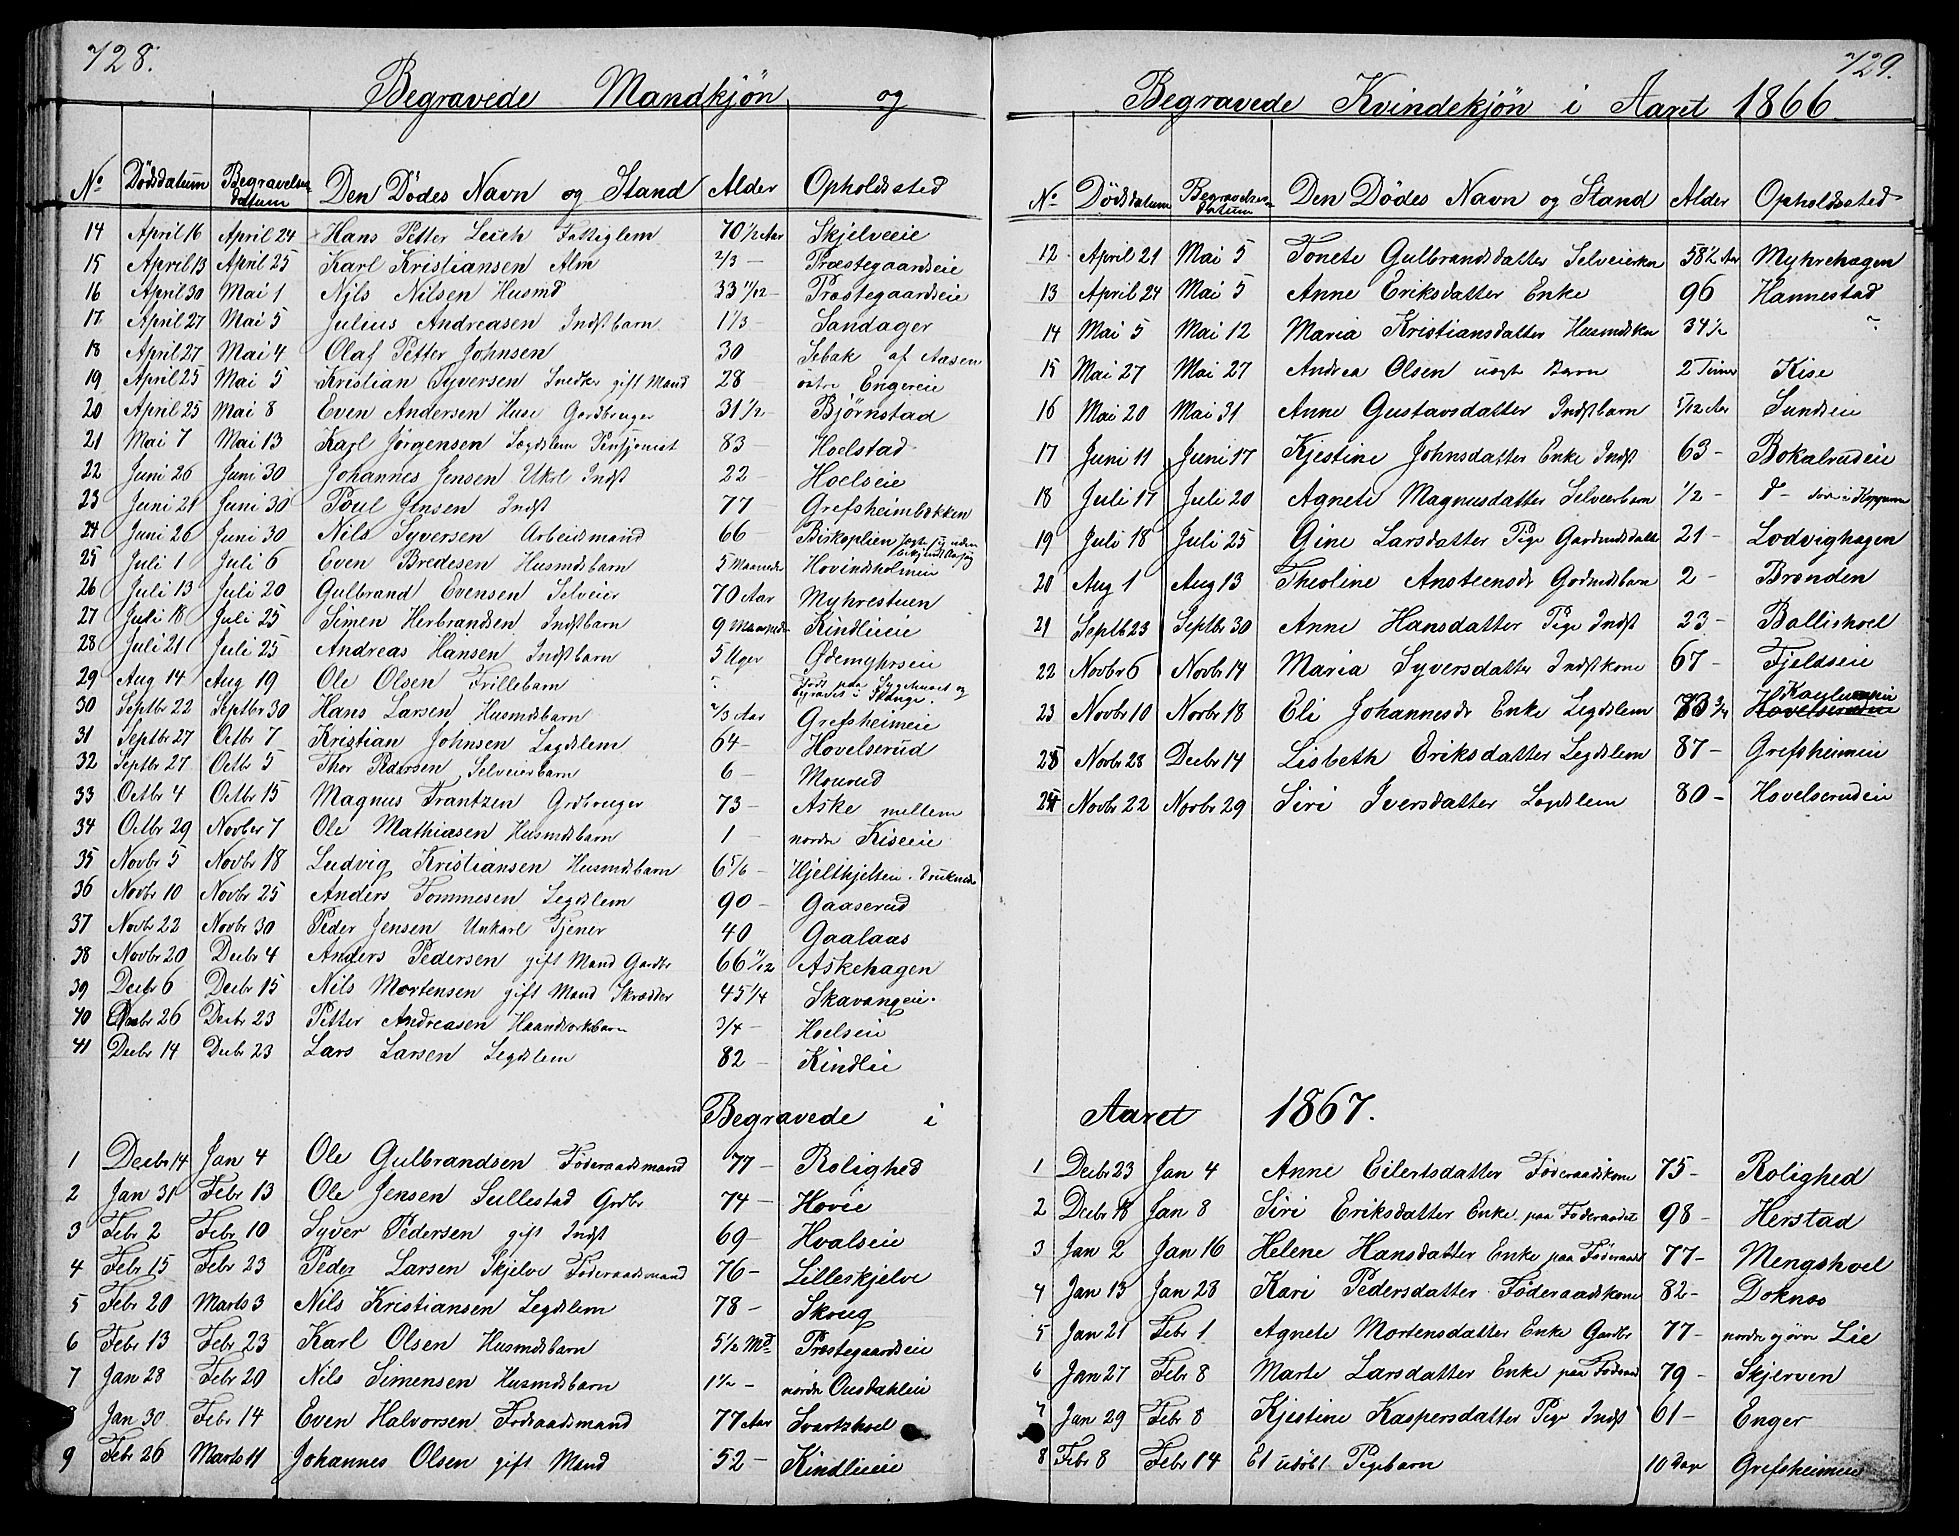 728.
Begravede Mandkjøn og
No Dødsdatum Begravelsesdatum Den Dødes Navn og Stand Alder Opholdssted
14 April 16 April 24 Hans Petter Leich Fattiglem 70 1/2 Aar Skjelveeie
15 April 13 April 25 Karl Kristiansen Alm 2/3 — Præstegaardseie
16 April 30 Mai 1 Nils Nilsen Husmd 33 11/12 — Præstegaardseie
17 April 27 Mai 5 Julius Andreasen Indstbarn 1 1/3 — Sandager
18 April 27 Mai 4 Olaf Petter Johnsen 30 Sebak af Aasen
19 April 25 Mai 5 Kristian Syversen Snedker gift Mand 28 — østre Engereie
20 April 25 Mai 8 Even Andersen Huse Gardbruger 31 1/2 — Bjørnstad
21 Mai 7 Mai 13 Karl Jørgensen Lægdslem Pensjonist 83 — Hoelstad
22 Juni 26 Juni 30 Johannes Jensen Ukrl Indst 22 — Hoelseie
23 Juni 21 Juni 30 Poul Jensen Indst 77 — Grefsheimbækken
24 Juni 26 Juni 30 Nils Syversen Arbeidsmand 66 — Biskoplien
25 Juli 1 Juli 6 Even Bredesen Husmdsbarn 5 Maaneder Hovindsholmeie
26 Juli 13 Juli 20 Gulbrand Evensen Selveier 70 Aar Myhrestuen
27 Juli 18 Juli 25 Simen Herbrandsen Indstbarn 9 Maaneder Kindlieie
28 Juli 21 Juli 25 Andreas Hansen Indstbarn 5 Uger Ødemyhrseie
29 Aug 14 Aug 19 Ole Olsen Frillebarn ? født paa Sygehuset og begravet i Stange.
30 Septbr 22 Septbr 30 Hans Larsen Husmdsbarn 2/3 Aar Grefsheimeie
31 Septbr 27 Octbr 7 Kristian Johnsen Lægdslem 64 — Hovelserud
32 Septbr 27 Octbr 5 Thor Pedersen Selveierbarn 6 — Mourud
33 Octbr 4 Octbr 15 Magnus Frantzen Grdbruger 73 — Aske mellem
34 Octbr 29 Novber 7 Ole Mathiasen Husmdsbarn 1 — nordre Kiseeie
35 Novbr 5 Novbr 18 Ludvig Kristiansen Husmdsbarn 6 5/6 — Hjelthjelten. druknede
36 Novbr 10 Novbr 25 Anders Tommesen Legdslem 90 — Gaaserud
37 Novbr 22 Novbr 30 Peder Jensen Unkarl Tjener 40 Gaalaas
38 Novbr 20 Decbr 4 Anders Pedersen gift Mand Gardbr 66 11/12 Askehagen
39 Decbr 6 Decbr 15 Nils Mortensen gift Mand Skrædder 45 1/4 Skavangeie.
40 Decbr 26 Decbr 23 Petter Andreasen Haandverkbarn 3/4 — Hoelseie
41 Decbr 14 Decbr 23 Lars Larsen Legdslem 82 — Kindlie
Begravede i
1 Decbr 14 Jan 4 Ole Gulbrandsen Føderaadsmand 77 — Rolighed
2 Jan 31 Febr 13 Ole Jensen Sullestad Grdbr 74 — Hovie
3 Febr 2 Febr 10 Syver Pedersen gift Indst 69 — Hvalseie
4 Febr 15 Febr 23 Peder Larsen Skjelve Føderaadsmand 76 — Lilleskjelve
5 Febr 20 Marts 3 Nils Kristiansen Legdslem 78 — Skoug
6 Febr 13 Febr 23 Karl Olsen Husmdsbarn 5 1/2 Md Præstegaardseie
7 Jan 28 Febr 20 Nils Simensen Husmdsbarn 1 1/2 — nordre Ousdahleie
Jan 30 Febr 14 Even Halvorsen Fødraadsmand 77 Aar Svartshoel
9 Febr 26 Marts 11 Johannes Olsen gift Mand 52 — Kindlieeie
729.
Begravede Kvindekjøn i Aaret 1866
No Dødsdatum Begravelsesdatum Den Dødes Navn og Stand Alder Opholdssted
12 April 21 Mai 5 Tonete Gulbrandsdatter Selveierkon 58 1/2 Aar Myhrehagen
13 April 24 Mai 5 Anne Eriksdatter Enke 96 Hannestad
14 Mai 5 Mai 12 Maria Kristiansdatter Husmdskon 34 1/2 ?
15 Mai 27 Mai 27 Andrea Olsen uægte Barn 2 Timer Kise
16 Mai 20 Mai 31 Anne Gustavsdatter Indstbarn 5/12 Aar Sundseie
17 Juni 11 Juni 17 Kjestine Johnsdatter Enke Indst 63 — Bokalrudeie
18 Juli 17 Juli 20 Agnete Magnusdatter Selveierbarn 1/2 —
19 Juli 18 Juli 25 Gine Larsdatter Pige Gardmdsdatt 21 — Lodvighagen
20 Aug 1 Aug 13 Theoline Ansteensdr Gardmdsbarn 2 — Brænden
21 Septb 23 Septbr 30 Anne Hansdatter Pige Indst 23 — Ballishoel
22 Novbr 6 Novbr 14 Maria Syversdatter Indstkone 67 — Fjeldseie
23 Novbr 10 Novbr 18 Eli Johannesdr Enke Legdslem 73 3/4 Hovelserudeie
25 Novbr 28 Decbr 14 Lisbeth Eriksdatter Legdslem 87 — Grefsheimeie
24 Novbr 22 Novbr 29 Siri Iversdatter Legdslem 80 — Hovelserudeie
Aaret 1867.
1 Decbr 23 Jan 4 Anne Eilertsdatter Føderaadskone 75 — Rolighed
2 Decbr 18 Jan 8 Siri Eriksdatter Enke paa Føderaadet 98 — Herstad
3 Jan 2 Jan 16 Helene Hansdatter Enke paa Føderaadet 77 — Mengshoel
4 Jan 13 Jan 28 Kari Pedersdatter Føderaadskone 82 — Doknos
5 Jan 21 Febr 1 Agnete Mortensdatter Enke Gardbr 77 — nordre øvre Lie
6 Jan 27 Febr 8 Marte Larsdatter Enke paa Føderaad 79 — Skjerven
7 Jan 29 Febr 8 Kjestine Kaspersdatter Pige Indst 61 — Enger
8 Febr 8 Febr 14 Et udøbt Pigebarn 10 Dage Grefsheimeie